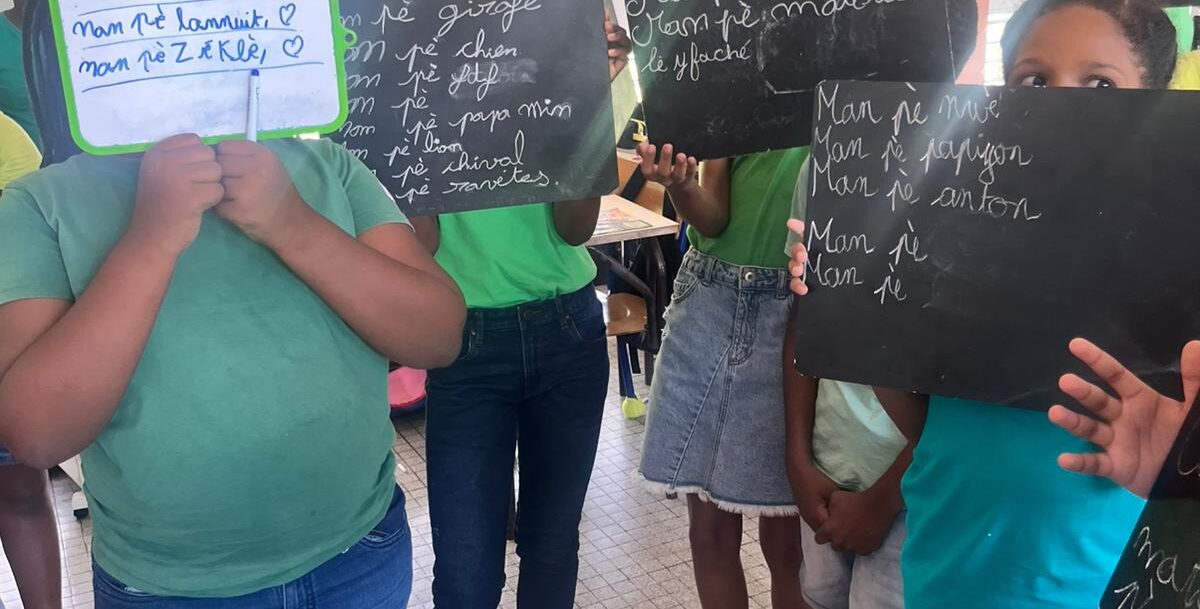 nan pè lannuit, ♡
nan pè Z é Klè, ♡
m pè girafe
m pè chien
m pè
nom pè papa min
m pè lion
pè chival
pè ravètes.
Man pè
le yfaché
Man pè nwè
Man pè papiyon
Man pè anton
Man pè
Man pè